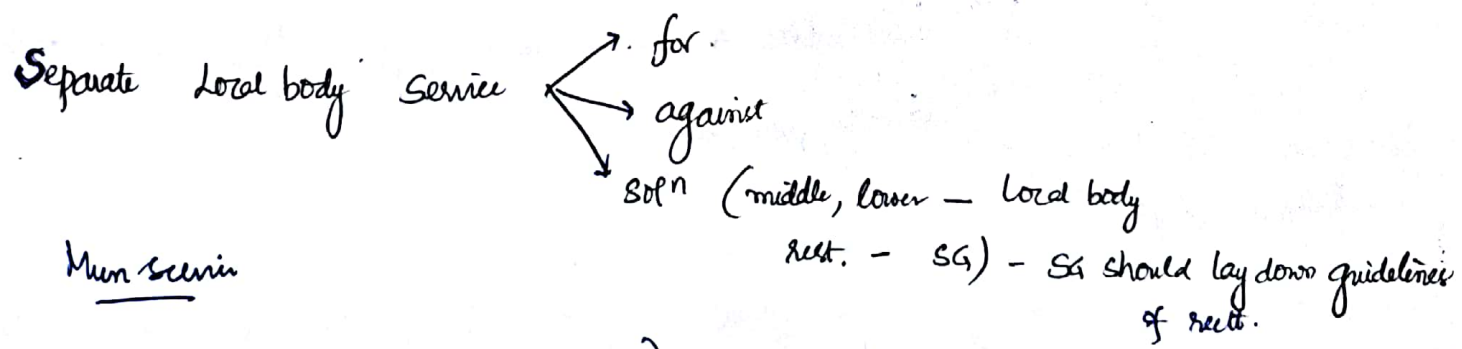 Separate Local body Service
. for.
against
Soln (middle, lower – local body
rest. – SG) – SG should lay down guidelines
of rectt.
Mun